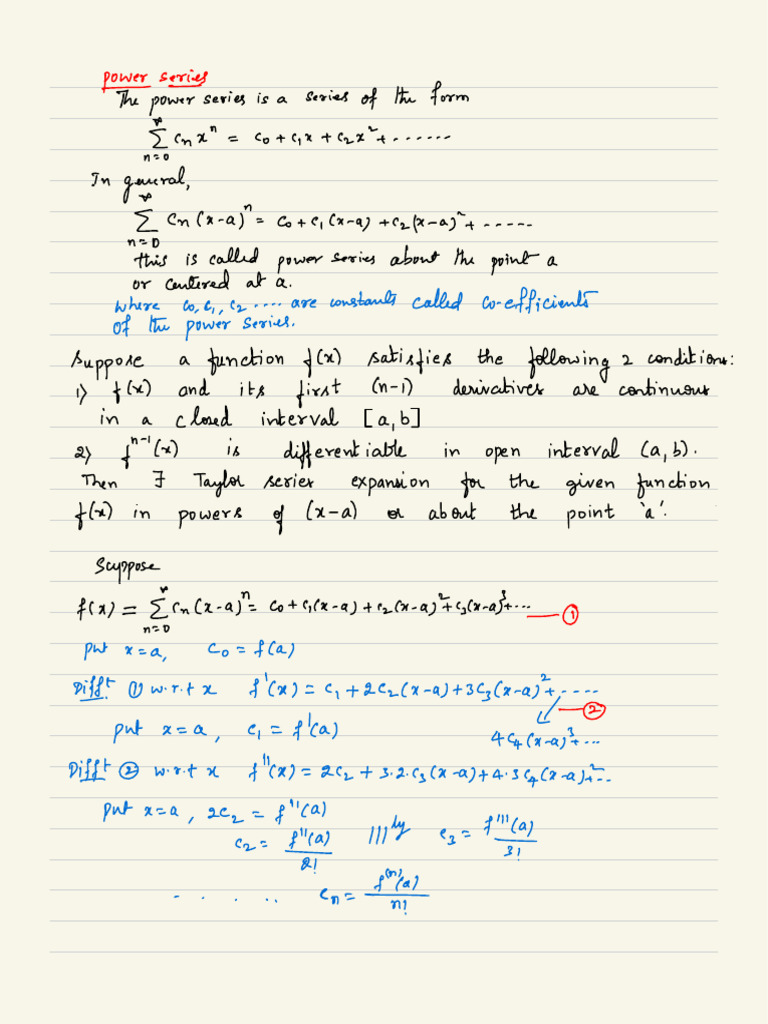 power series
The power series is a series of the form
∞
∑ cₙxⁿ = c₀ + c₁x + c₂x² + .......
n=0
In general,
∞
∑ cₙ(x-a)ⁿ = c₀ + c₁(x-a) + c₂(x-a)² + .....
n=0
this is called power series about the point a
or centered at a.
where c₀, c₁, c₂ .... are constants called co-efficients
of the power series.
Suppose a function f(x) satisfies the following 2 conditions:
1) f(x) and its first (n-1) derivatives are continuous
in a closed interval [a,b]
2) fⁿ⁻¹(x) is differentiable in open interval (a,b).
Then ∃ Taylor series expansion for the given function
f(x) in powers of (x-a) or about the point 'a'.
Suppose
∞
f(x) = ∑ cₙ(x-a)ⁿ = c₀ + c₁(x-a) + c₂(x-a)² + c₃(x-a)³ + ... ①
n=0
put x=a, c₀ = f(a)
Diffᵗ ① w.r.t x f'(x) = c₁ + 2c₂(x-a) + 3c₃(x-a)² + ....
②
put x=a, c₁ = f'(a) 4c₄(x-a)³ + ...
Diffᵗ ② w.r.t x f''(x) = 2c₂ + 3.2.c₃(x-a) + 4.3c₄(x-a)² + ...
put x=a, 2c₂ = f''(a)
c₂ = f''(a)/2! |||ly c₃ = f'''(a)/3!
. . . .. cₙ = f⁽ⁿ⁾(a)/n!